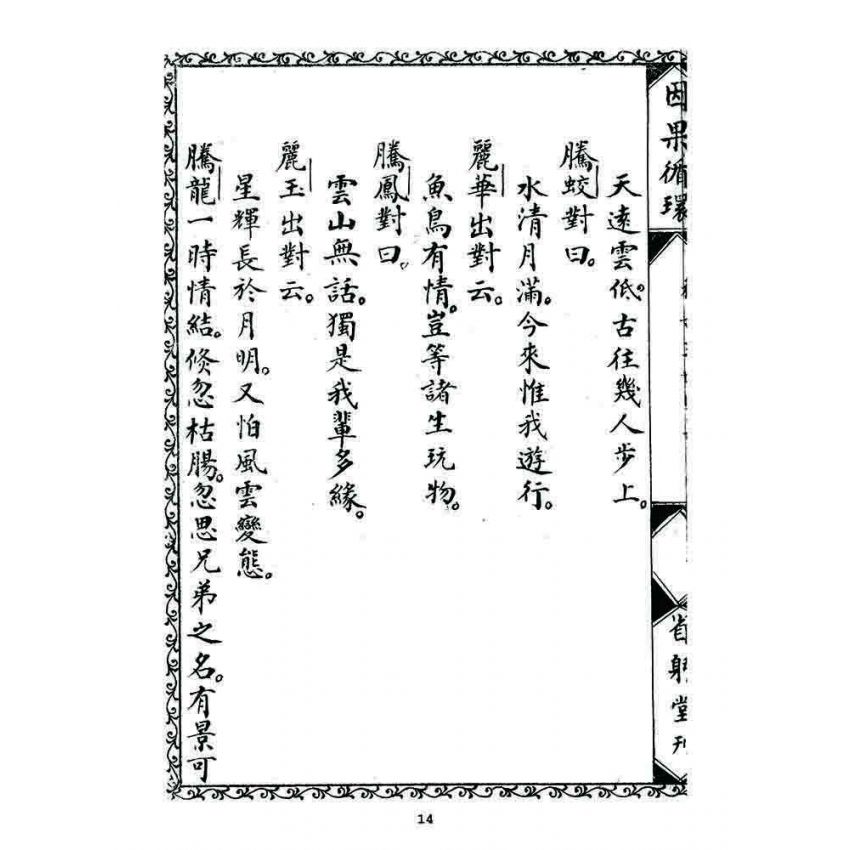 因果循環
省躬堂刊
天遠雲低。古往幾人步上。
騰蛟對曰。
水清月滿。今來惟我遊行。
麗華出對云。
魚鳥有情。豈等諸生玩物。
騰鳳對曰。
雲山無話。獨是我輩多緣。
麗玉出對云。
星輝長於月明。又怕風雲變態。
騰龍一時情結。倏忽枯腸。忽思兄弟之名。有景可
14